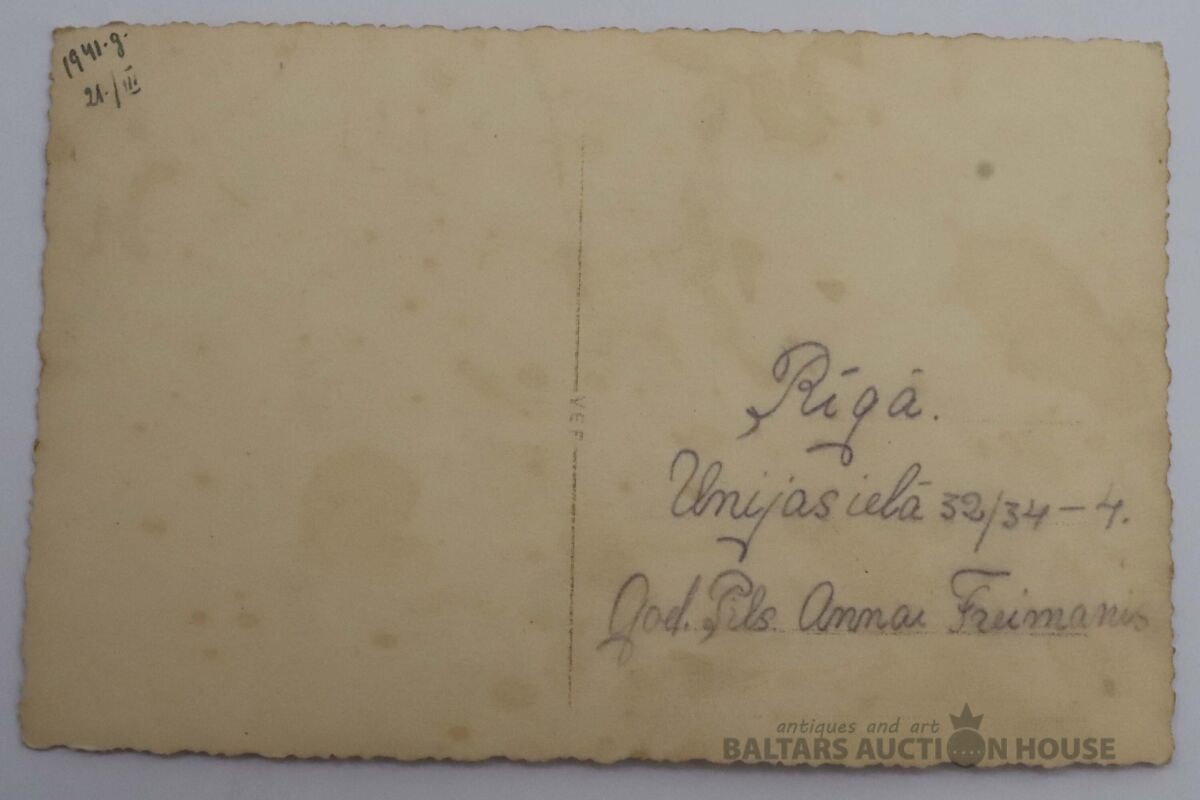 1941.g.
21./III
VEF
Rīgā.
Unijas ielā 32/34-4.
God. Pils. Annai Freimanis
antiques and art
BALTARS AUCTION HOUSE